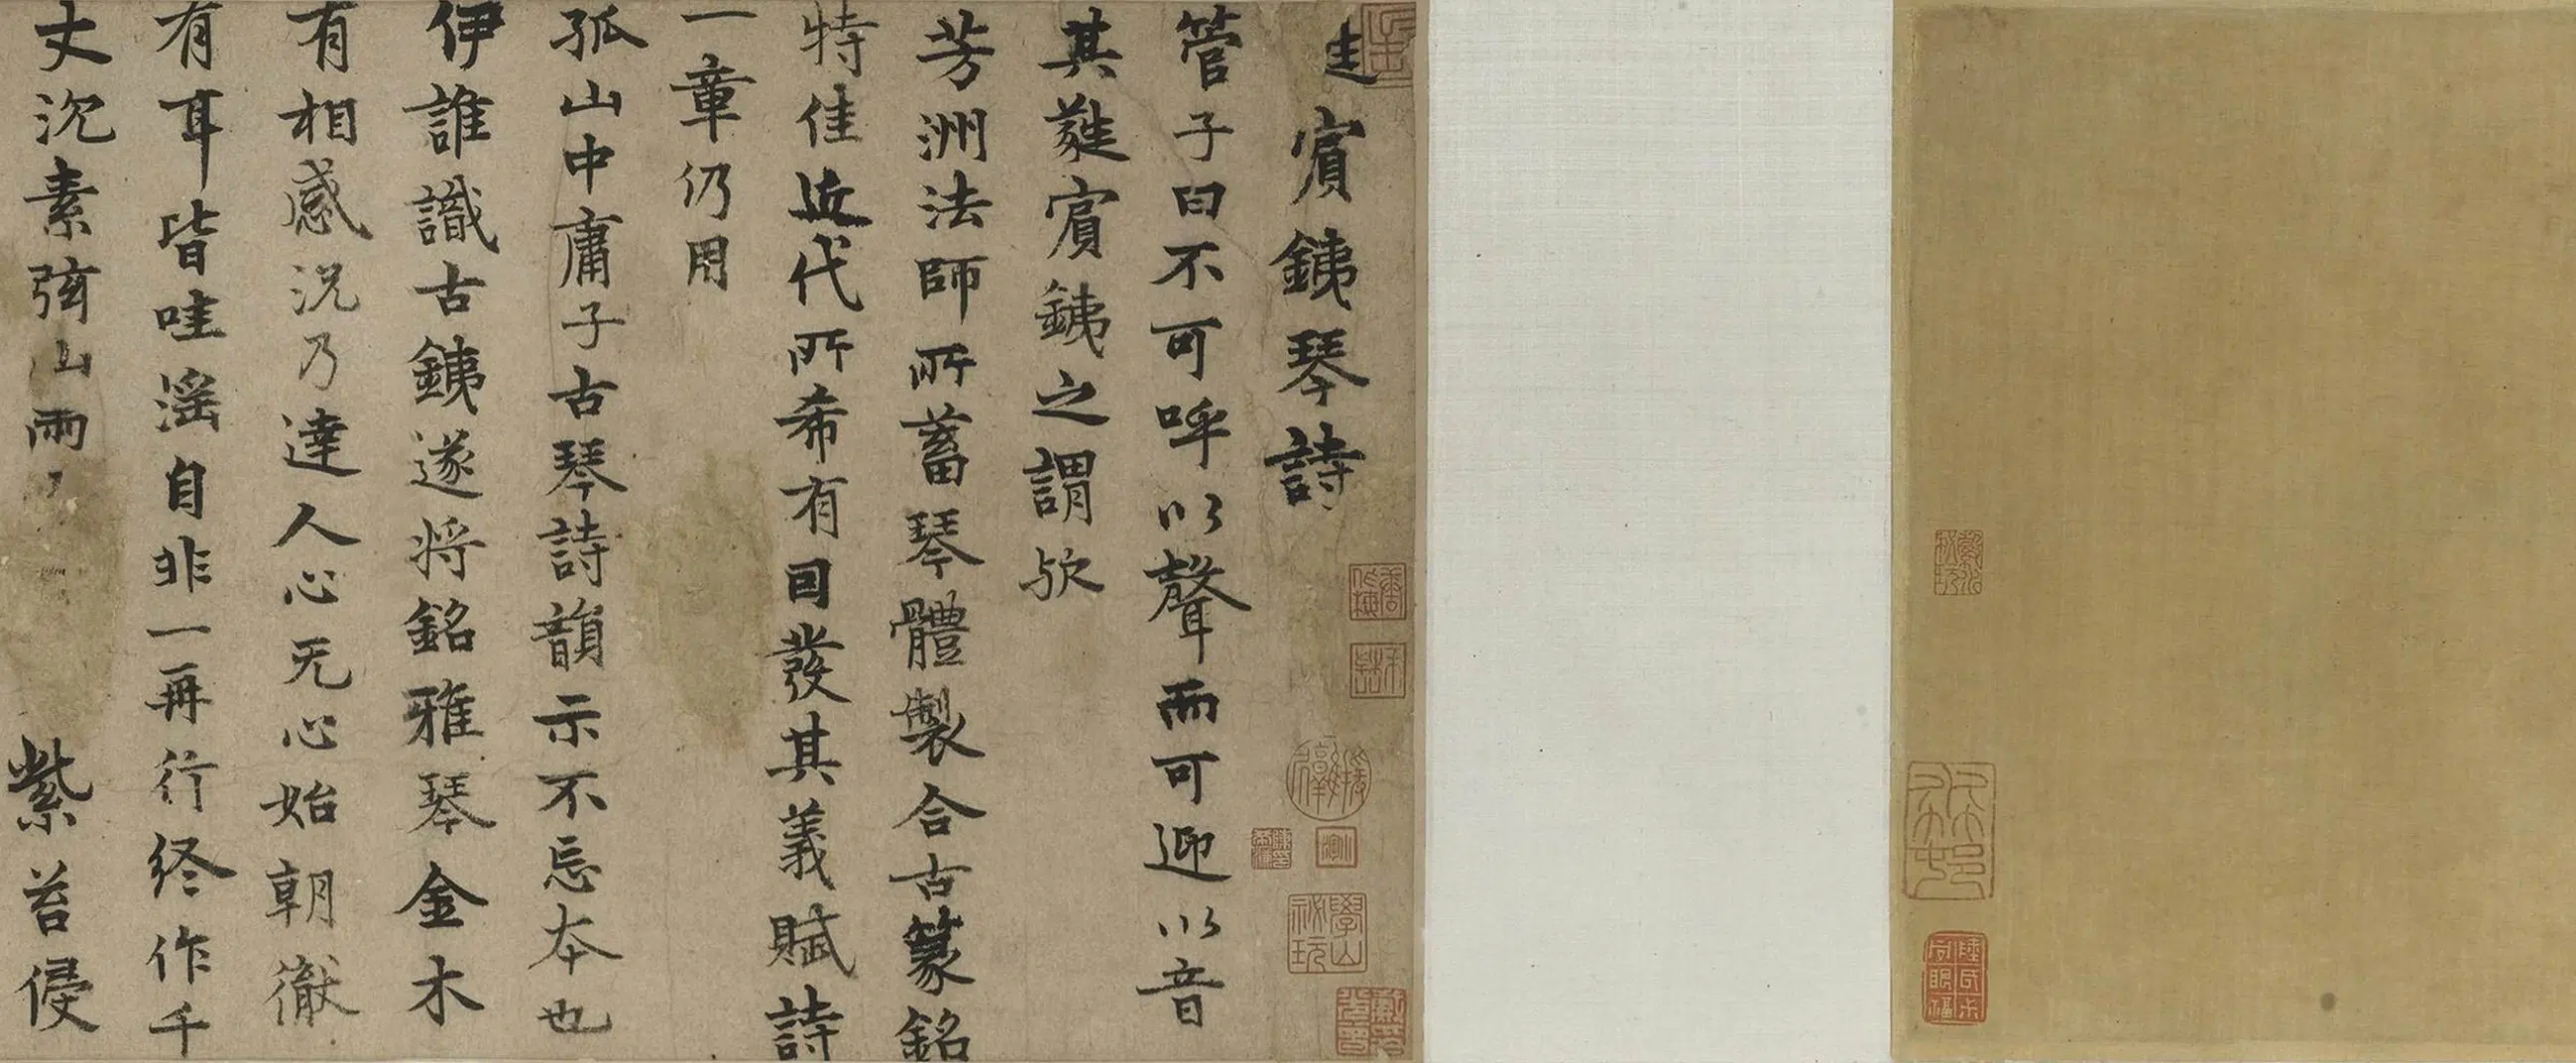 賔銕琴詩
管子曰不可呼以聲而可迎以音
其蕤賔銕之謂歟
芳洲法師所蓄琴體製合古篆銘
特佳近代所希有囙發其義賦詩
一章仍用
孤山中庸子古琴詩韻示不忘本也
伊誰識古銕遂將銘雅琴金木
有相感況乃達人心无心始朝徹
有耳皆哇滛自非一再行終作千
丈沉素弦山雨 紫苔侵
學山祕玩